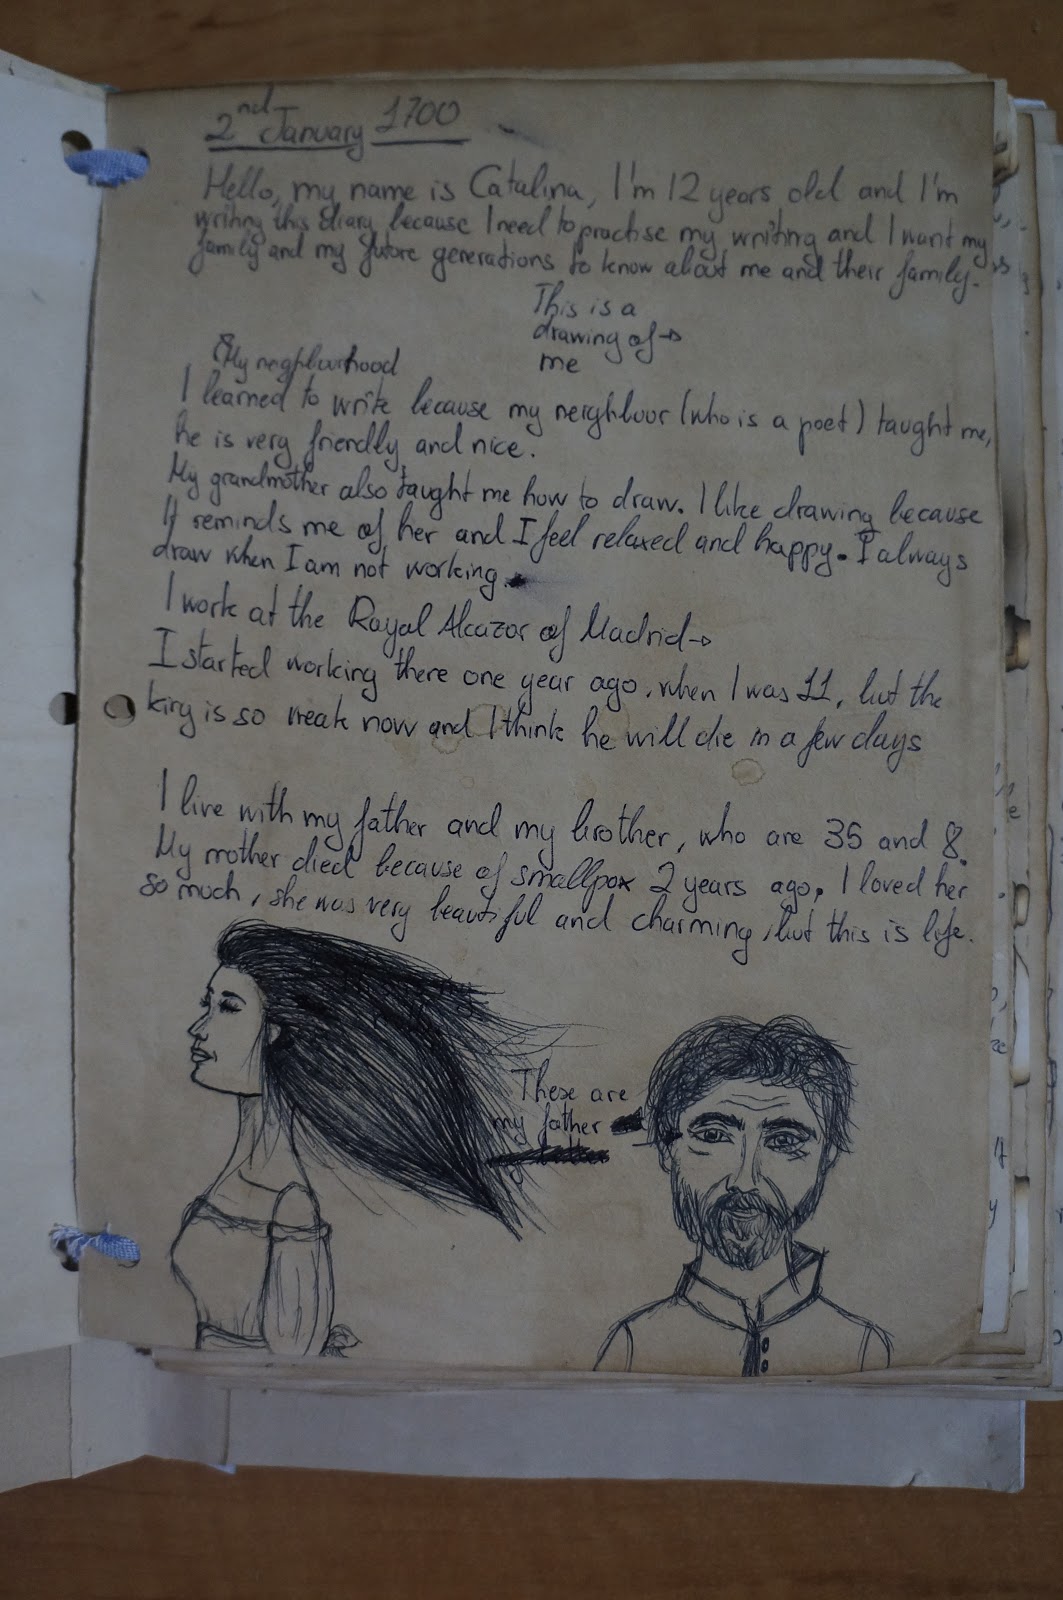 2nd January 1700
Hello, my name is Catalina, I'm 12 years old and I'm
writing this diary because I need to practise my writing and I want my
family and my future generations to know about me and their family.
This is a
drawing of →
me
My neghbourhood
I learned to write because my neighbour (who is a poet) taught me,
he is very friendly and nice.
My grandmother also taught me how to draw. I like drawing because
It reminds me of her and I feel relaxed and happy. I always
draw when I am not working.
I work at the Royal Alcazar of Madrid→
I started working there one year ago, when I was 11, but the
king is so weak now and I think he will die in a few days
I live with my father and my brother, who are 35 and 8.
My mother died because of smallpox 2 years ago, I loved her
so much, she was very beautiful and charming, but this is life.
These are
my father